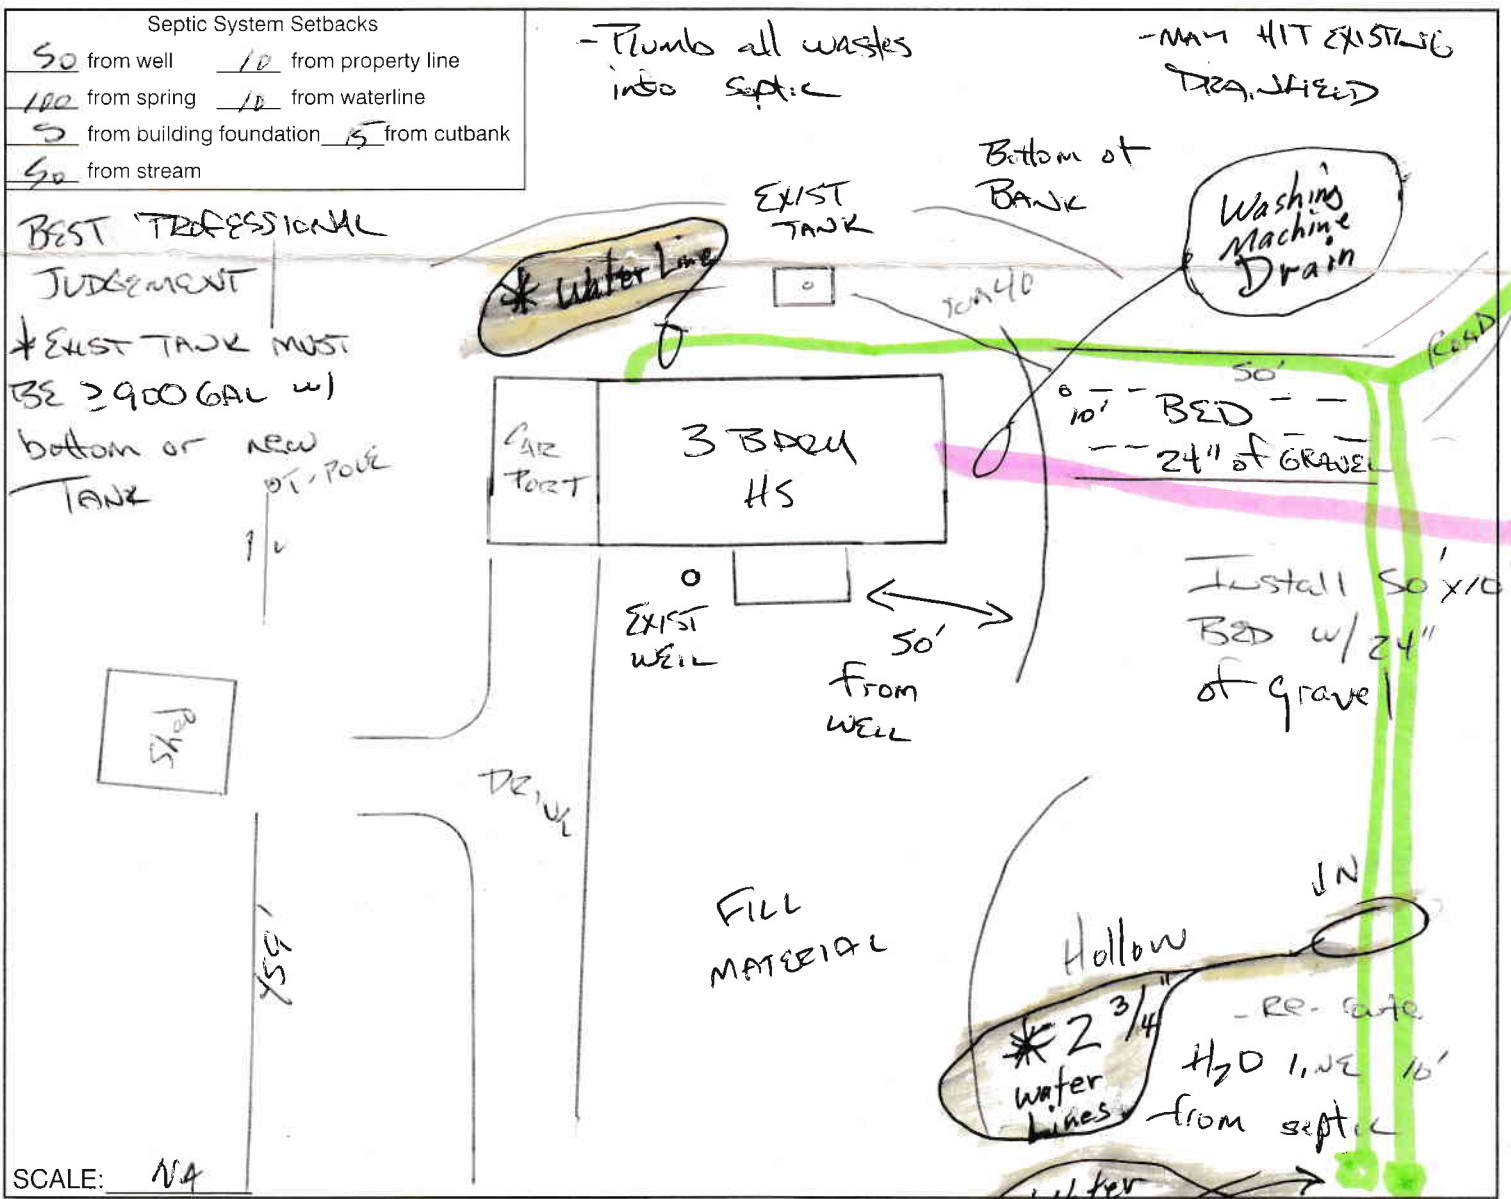 Septic System Setbacks
50 from well 10 from property line
100 from spring 10 from waterline
5 from building foundation 15 from cutbank
50 from stream
- Plumb all wastes
into septic
- MAY HIT EXISTING
DRAINFIELD
BEST PROFESSIONAL
JUDGEMENT
* EXIST TANK MUST
BE ≥ 900 GAL w/
bottom or new
TANK
* Water Line
EXIST
TANK
Bottom of
BANK
Washing
Machine
Drain
SCH 40
ROAD
50'
10' BED
24" of GRAVEL
CAR
PORT
3 BDRM
HS
T-POLE
EXIST
WELL
50'
from
WELL
Install 50'x10'
BED w/ 24"
of gravel
Shed
DRIVE
459'
FILL
MATERIAL
Hollow
IN
* 2 3/4"
water
Lines
- Re-route
H2O LINE 10'
from septic
Water
SCALE: NA